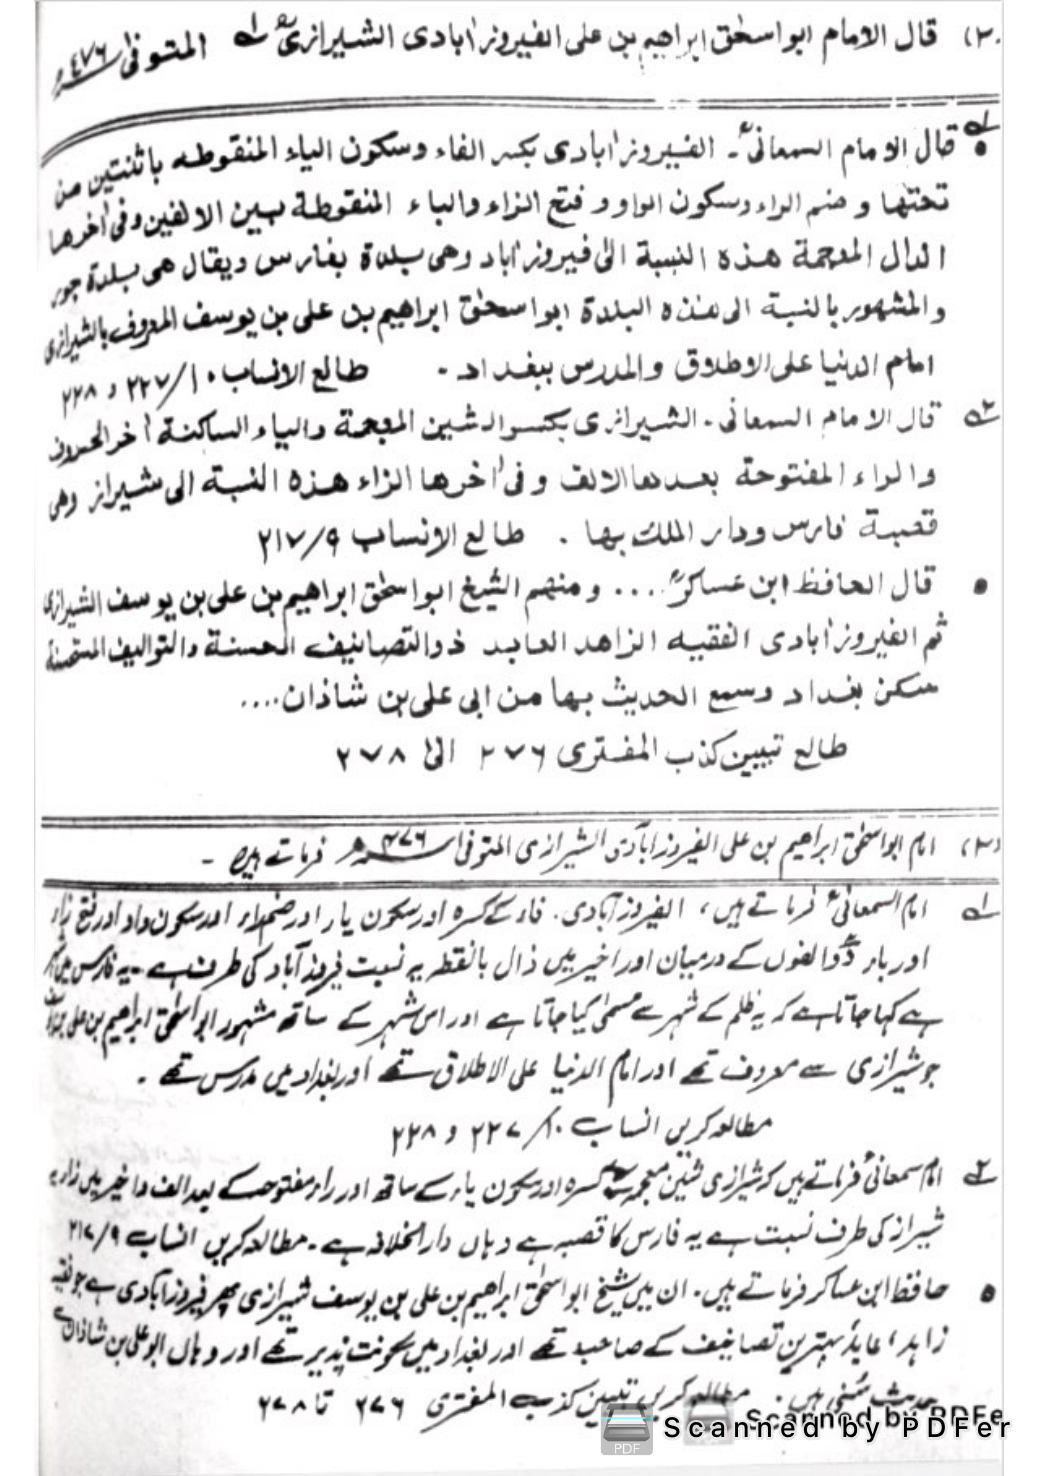 (٣) قال الامام ابواسحٰق ابراهيم بن على الفيروزاٰبادى الشيرازىؒ المتوفىٰ ٤٧٦ھ
قال الامام السمعانىؒ۔ الفيروزاٰبادى بكسر الفاء وسكون الياء المنقوطه باثنتين من
تحتها وضم الراء وسكون الواو و فتح الزاء والباء المنقوطة بين الالفين وفى اٰخرها
الدال المعجمة هذه النسبة الىٰ فيروزاٰباد وهى بلدة بفارس ويقال هى بلدة جور
والمشهور بالنسبة الى هذه البلدة ابواسحٰق ابراهيم بن على بن يوسف المعروف بالشيرازى
امام الدنيا على الاطلاق والمدرس ببغداد ۔ طالع الانساب ١٠/٢٢٧ و ٢٢٨
قال الامام السمعانى ۔ الشيرازى بكسر الشين المعجمة والياء الساكنة اٰخر الحروف
والراء المفتوحة بعدها الالف و فى اٰخرها الزاء هذه النسبة الى شيراز وهى
قصبة فارس ودار الملك بها ۔ طالع الانساب ٢١٧/٩
• قال الحافظ ابن عساكرؒ .... ومنهم الشيخ ابواسحٰق ابراهيم بن على بن يوسف الشيرازى
ثم الفيروزاٰبادى الفقيه الزاهد العابد ذوالتصانيف الحسنة والتواليف المستحسنة
سكن بغداد وسمع الحديث بها من ابى على بن شاذان ....
طالع تبيين كذب المفترى ٢٧٦ الىٰ ٢٧٨
(٣) امام ابواسحٰق ابراہیم بن علی الفیروزآبادی الشیرازی المتوفیٰ ٤٧٦ھ فرماتے ہیں ۔
١ امام السمعانیؒ فرماتے ہیں، الفیروزآبادی. فاء کے کسرہ اور سکون یاء اور ضم راء اور سکون واو اور فتح زاء
اور باء دو الفوں کے درمیان اور اخیر میں ذال بالنقطہ یہ نسبت فیروزآباد کی طرف ہے ۔ یہ فارس میں
ہے کہا جاتا ہے کہ یہ ظلم کے شہر سے مسمی کیا جاتا ہے اور اس شہر کے ساتھ مشہور ابواسحٰق ابراہیم بن علی بن یوسف
جو شیرازی سے معروف تھے اور امام الدنیا علی الاطلاق تھے اور بغداد میں مدرس تھے ۔
مطالعہ کریں انساب ١٠/٢٢٧ و ٢٢٨
٢ امام سمعانیؒ فرماتے ہیں کہ شیرازی شین معجمہ کے کسرہ اور سکون یاء کے ساتھ اور راء مفتوحہ کے بعد الف و اخیر میں زاء یہ
شیراز کی طرف نسبت ہے یہ فارس کا قصبہ ہے وہاں دار الخلافہ ہے ۔ مطالعہ کریں انساب ٢١٧/٩
• حافظ ابن عساکر فرماتے ہیں. ان میں شیخ ابواسحٰق ابراہیم بن علی بن یوسف شیرازی پھر فیروزآبادی ہے جو فقیہ
زاہد، عابد بہترین تصانیف کے صاحب تھے اور بغداد میں سکونت پذیر تھے اور وہاں ابوعلی بن شاذان سے
حدیث سنی ہیں ۔ مطالعہ کریں تبیین کذب المفتری ٢٧٦ تا ٢٧٨
Scanned by PDFer